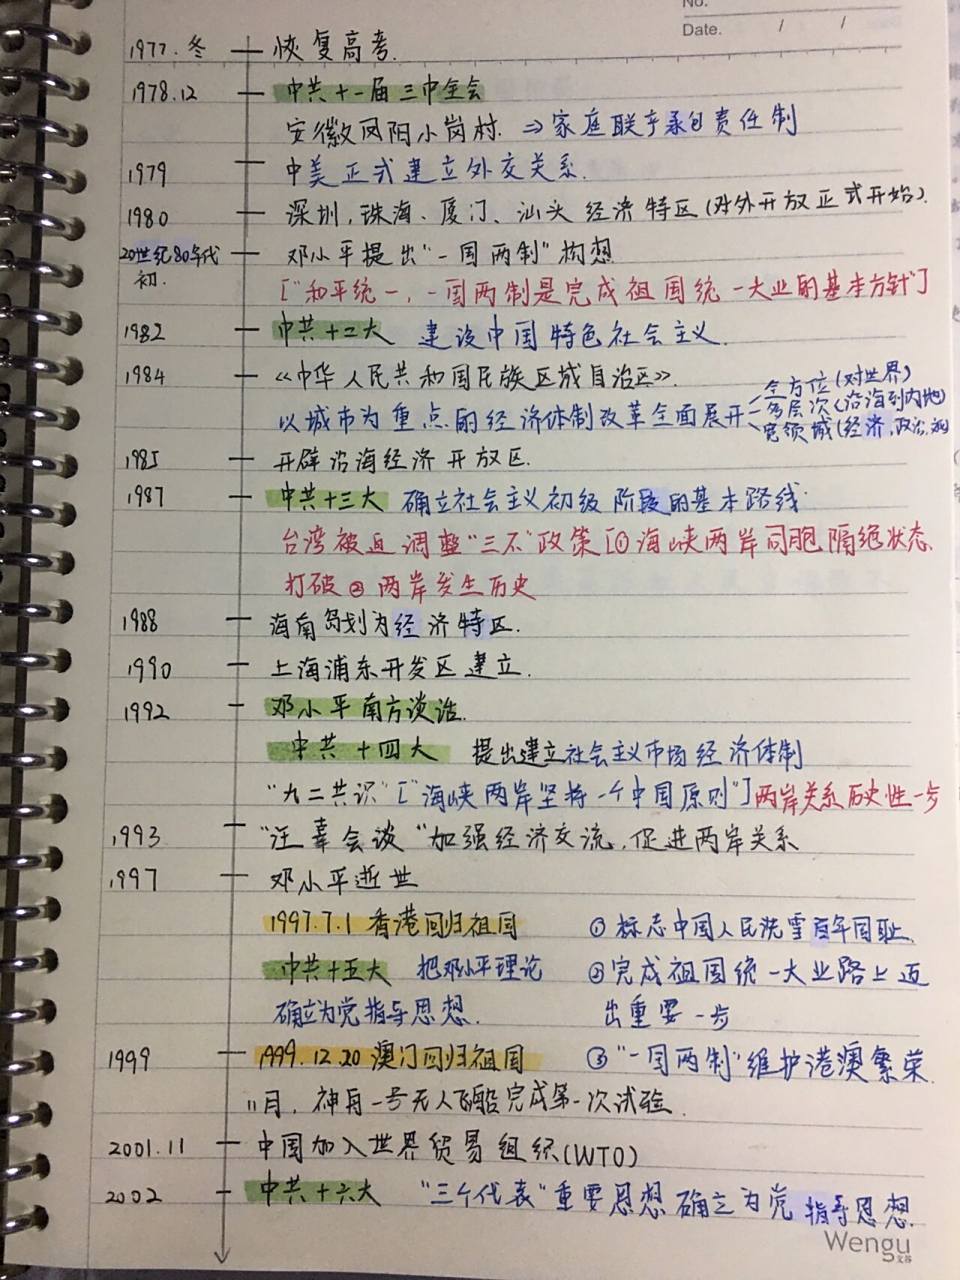 No.
Date. / /
1977.冬 恢复高考.
1978.12 中共十一届三中全会
安徽凤阳小岗村. ⇒家庭联产承包责任制
1979 中美正式建立外交关系.
1980 深圳,珠海、厦门、汕头 经济特区(对外开放正式开始).
20世纪80年代初. 邓小平提出"一国两制"构想
["和平统一,一国两制是完成祖国统一大业的基本方针"]
1982 中共十二大 建设中国特色社会主义.
1984 《中华人民共和国民族区域自治区》.
全方位(对世界)
以城市为重点的经济体制改革全面展开 多层次(沿海到内地)
宽领域(经济,政治,
1985 开辟沿海经济开放区.
1987 中共十三大 确立社会主义初级阶段的基本路线.
台湾被迫调整"三不"政策[①海峡两岸同胞隔绝状态
打破②两岸发生历史
1988 海南岛划为经济特区.
1990 上海浦东开发区建立.
1992 邓小平南方谈话.
中共十四大 提出建立社会主义市场经济体制
"九二共识"["海峡两岸坚持一个中国原则"]两岸关系历史性一步
1993 "汪辜会谈"加强经济交流,促进两岸关系
1997 邓小平逝世
1997.7.1 香港回归祖国 ①标志中国人民洗雪百年国耻.
中共十五大 把邓小平理论 ②完成祖国统一大业路上迈
确立为党指导思想. 出重要一步
1999 1999.12.20 澳门回归祖国 ③"一国两制"维护港澳繁荣.
11月,神舟一号无人飞船完成第一次试验.
2001.11 中国加入世界贸易组织(WTO)
2002 中共十六大 "三个代表"重要思想确立为党指导思想.
Wengu
文谷